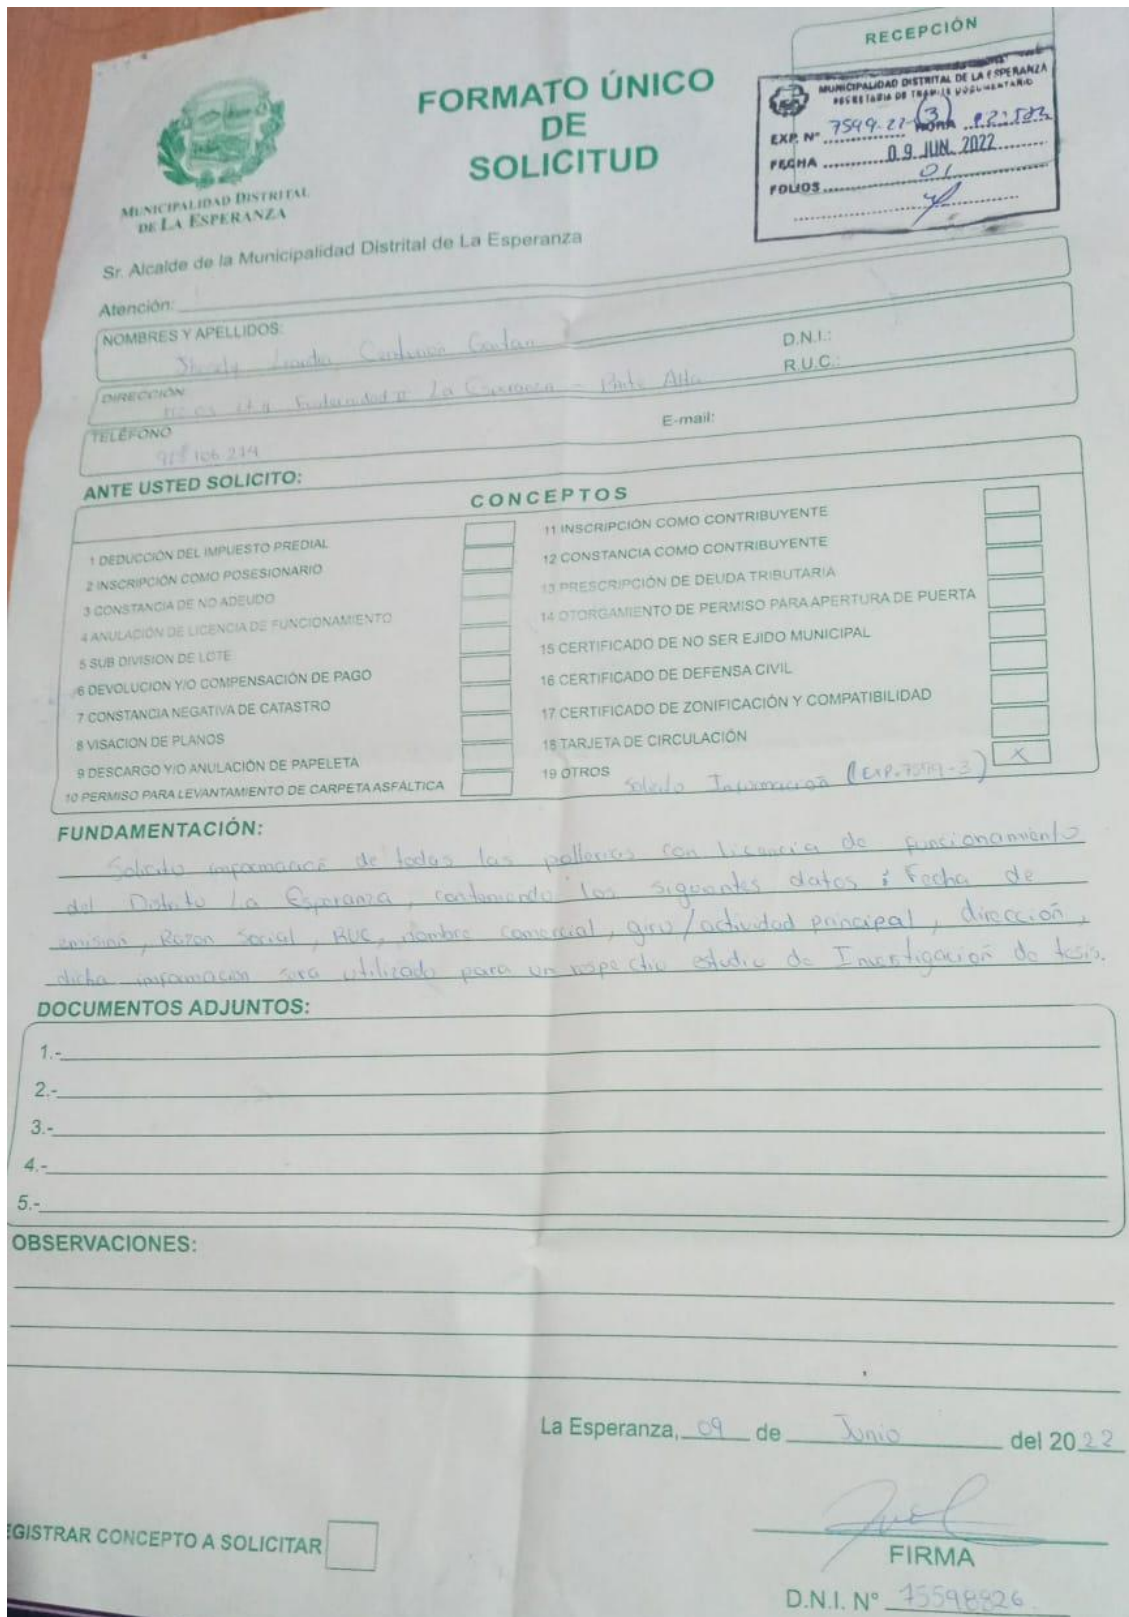 RECEPCIÓN
MUNICIPALIDAD DISTRITAL DE LA ESPERANZA
SECRETARIA DE TRAMITE DOCUMENTARIO
EXP. N° 7599-22 (3) HORA
FECHA 09 JUN. 2022
FOLIOS 01
FORMATO ÚNICO
DE
SOLICITUD
MUNICIPALIDAD DISTRITAL
DE LA ESPERANZA
Sr. Alcalde de la Municipalidad Distrital de La Esperanza
Atención:
NOMBRES Y APELLIDOS:
Gaitan
D.N.I.:
R.U.C.:
DIRECCIÓN
La Esperanza - Parte Alta
TELÉFONO
E-mail:
106 214
ANTE USTED SOLICITO:
CONCEPTOS
1 DEDUCCIÓN DEL IMPUESTO PREDIAL
2 INSCRIPCIÓN COMO POSESIONARIO
3 CONSTANCIA DE NO ADEUDO
4 ANULACIÓN DE LICENCIA DE FUNCIONAMIENTO
5 SUB DIVISION DE LOTE
6 DEVOLUCION Y/O COMPENSACIÓN DE PAGO
7 CONSTANCIA NEGATIVA DE CATASTRO
8 VISACION DE PLANOS
9 DESCARGO Y/O ANULACIÓN DE PAPELETA
10 PERMISO PARA LEVANTAMIENTO DE CARPETA ASFÁLTICA
11 INSCRIPCIÓN COMO CONTRIBUYENTE
12 CONSTANCIA COMO CONTRIBUYENTE
13 PRESCRIPCIÓN DE DEUDA TRIBUTARIA
14 OTORGAMIENTO DE PERMISO PARA APERTURA DE PUERTA
15 CERTIFICADO DE NO SER EJIDO MUNICIPAL
16 CERTIFICADO DE DEFENSA CIVIL
17 CERTIFICADO DE ZONIFICACIÓN Y COMPATIBILIDAD
18 TARJETA DE CIRCULACIÓN
19 OTROS Solicito Información (Exp. 7599-3) X
FUNDAMENTACIÓN:
Solicito información de todas las pollerias con licencia de funcionamiento
del Distrito La Esperanza, conteniendo los siguientes datos: Fecha de
emisión, Razon Social, RUC, nombre comercial, giro/actividad principal, dirección,
dicha información sera utilizado para un respectivo estudio de Investigación de tesis.
DOCUMENTOS ADJUNTOS:
1.-
2.-
3.-
4.-
5.-
OBSERVACIONES:
La Esperanza, 09 de Junio del 2022
EGISTRAR CONCEPTO A SOLICITAR
FIRMA
D.N.I. N° 75598826